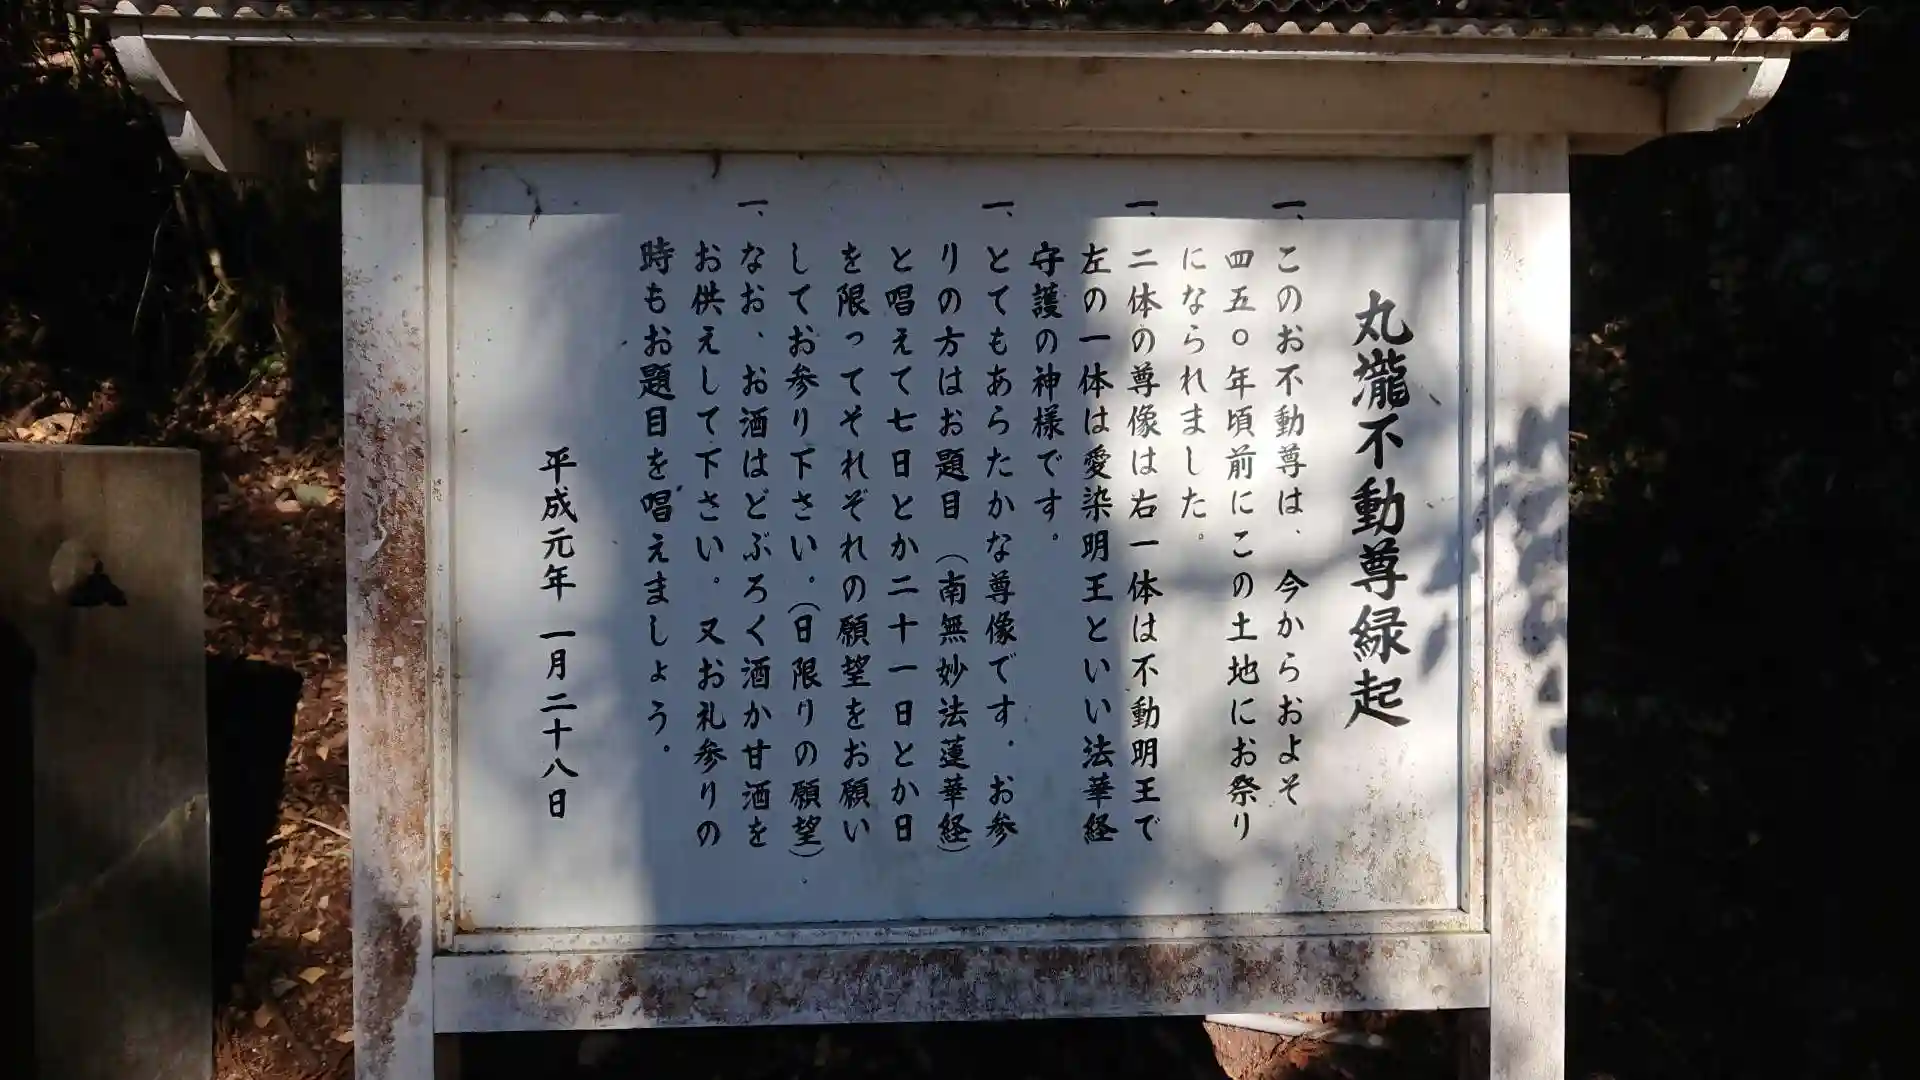 丸瀧不動尊緑起
一、このお不動尊は、今からおよそ
四五〇年頃前にこの土地にお祭り
になられました。
一、二体の尊像は右一体は不動明王で
左の一体は愛染明王といい法華経
守護の神様です。
一、とてもあらたかな尊像です。お参
りの方はお題目（南無妙法蓮華経）
と唱えて七日とか二十一日とか日
を限ってそれぞれの願望をお願い
してお参り下さい。（日限りの願望）
一、なお、お酒はどぶろく酒か甘酒を
お供えして下さい。又お礼参りの
時もお題目を唱えましょう。
平成元年 一月二十八日